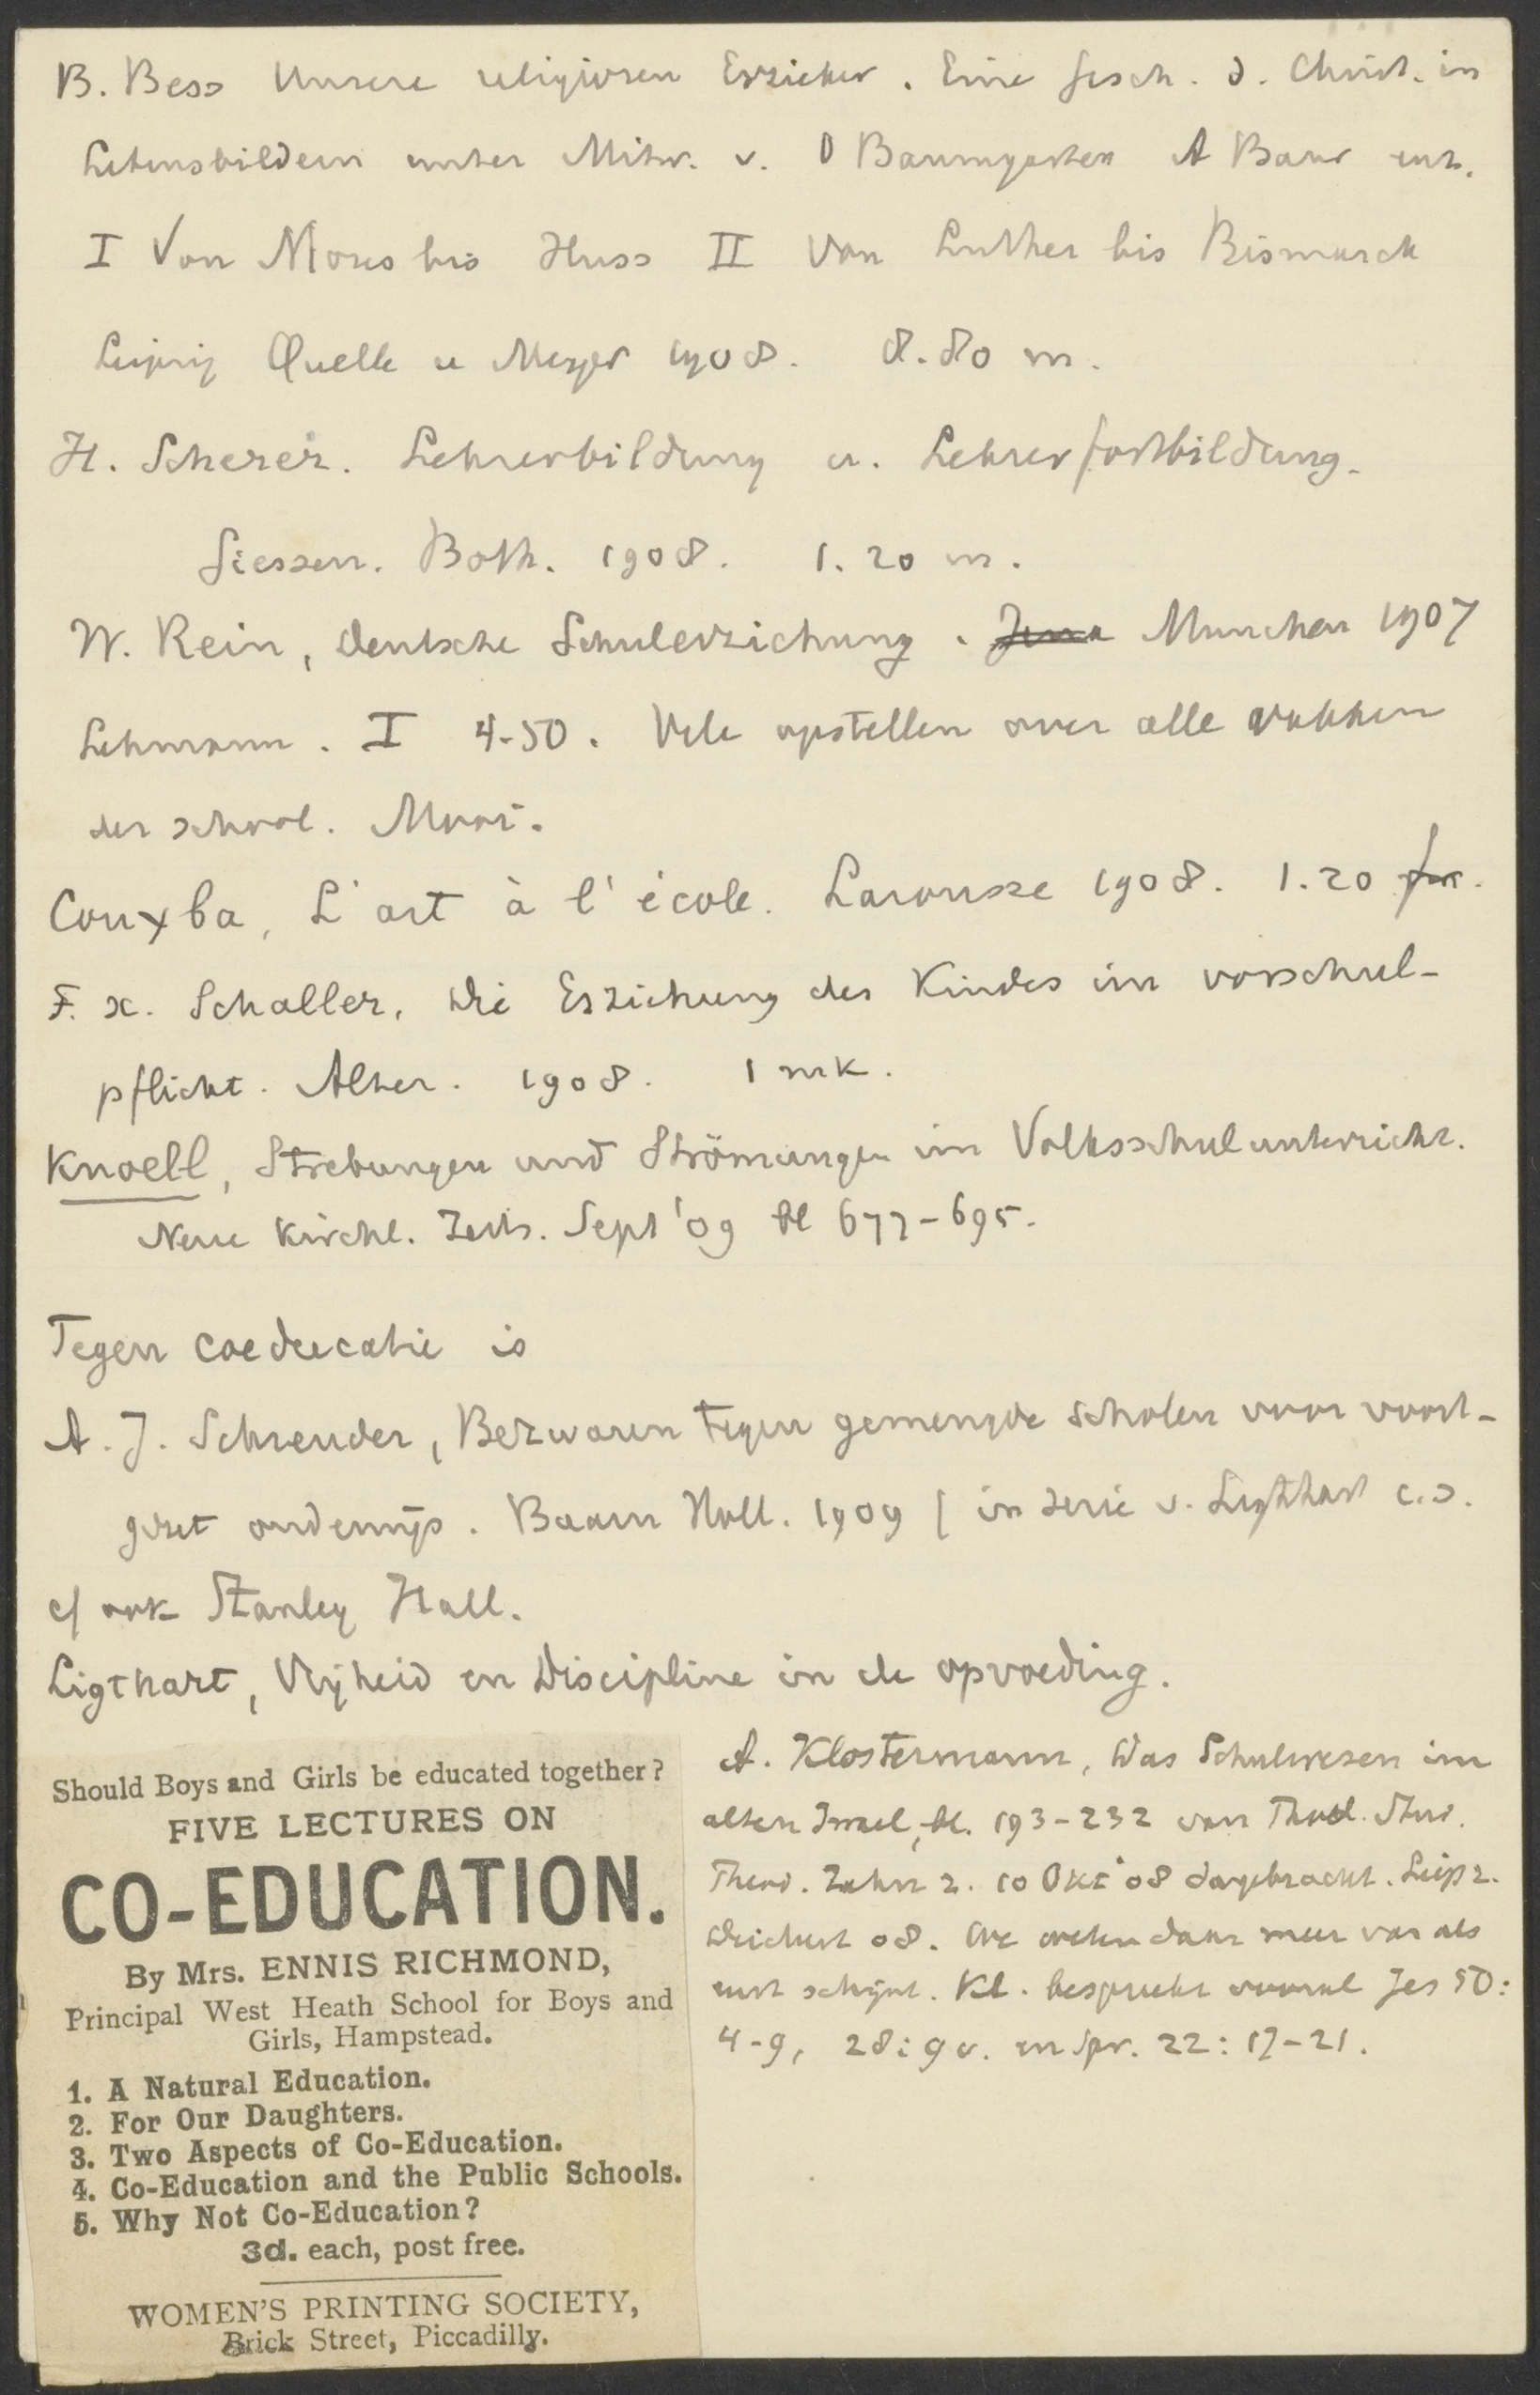 B. Bess Unsere religiosen Erzieher. Eine Gesch. d. Christ. in
Lebensbildern unter Mitw. v. O Baumgarten A Baur enz.
I Von Moses bis Huss II Von Luther bis Bismarck
Leipzig Quelle u Meyer 1908. 8.80 m.
H. Scherer. Lehrerbildung u. Lehrerfortbildung.
Giessen. Roth. 1908. 1.20 m.
W. Rein, Deutsche Schulerziehung. Jena Munchen 1907
Lehmann. I 4-50. Vele opstellen over alle vakken
der school. Mooi.
Couyba, L'art à l'école. Larousse 1908. 1.20 fr.
F. X. Schaller, Die Erziehung des Kindes im vorschul-
pflicht. Alter. 1908. 1 mk.
Knoell, Strebungen und Strömungen im Volksschulunterricht.
Neue Kirchl. Zeits. Sept '09 bl 677-695.
Tegen coeducatie is
A. J. Schreuder, Bezwaren tegen gemengde scholen voor voort-
gezet onderwijs. Baarn Holl. 1909 / in serie v. Ligthart c.s.
cf ook Stanley Hall.
Ligthart, Vrijheid en Discipline in de opvoeding.
Should Boys and Girls be educated together?
FIVE LECTURES ON
CO-EDUCATION.
By Mrs. ENNIS RICHMOND,
Principal West Heath School for Boys and
Girls, Hampstead.
1. A Natural Education.
2. For Our Daughters.
3. Two Aspects of Co-Education.
4. Co-Education and the Public Schools.
5. Why Not Co-Education?
3d. each, post free.
WOMEN'S PRINTING SOCIETY,
Brick Street, Piccadilly.
A. Klostermann, Das Schulwesen im
alten Israel, bl. 193-232 van Theol. Stud.
Theod. Zahn z. 10 Okt '08 dargebracht. Leipz.
Deichert 08. We weten daar meer van als
eerst schijnt. Kl. bespreekt vooral Jes 50:
4-9, 28:9 v. en Spr. 22: 17-21.